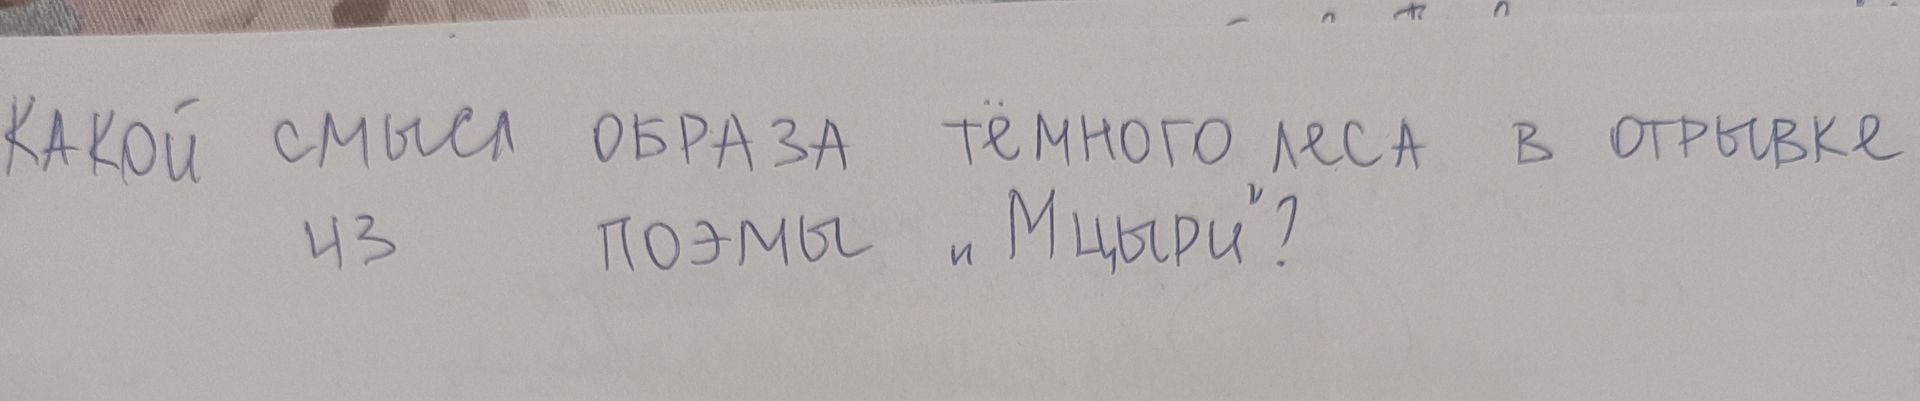 КАКОЙ СМЫСЛ ОБРАЗА ТЁМНОГО ЛЕСА В ОТРЫВКЕ
ИЗ ПОЭМЫ „Мцыри"?